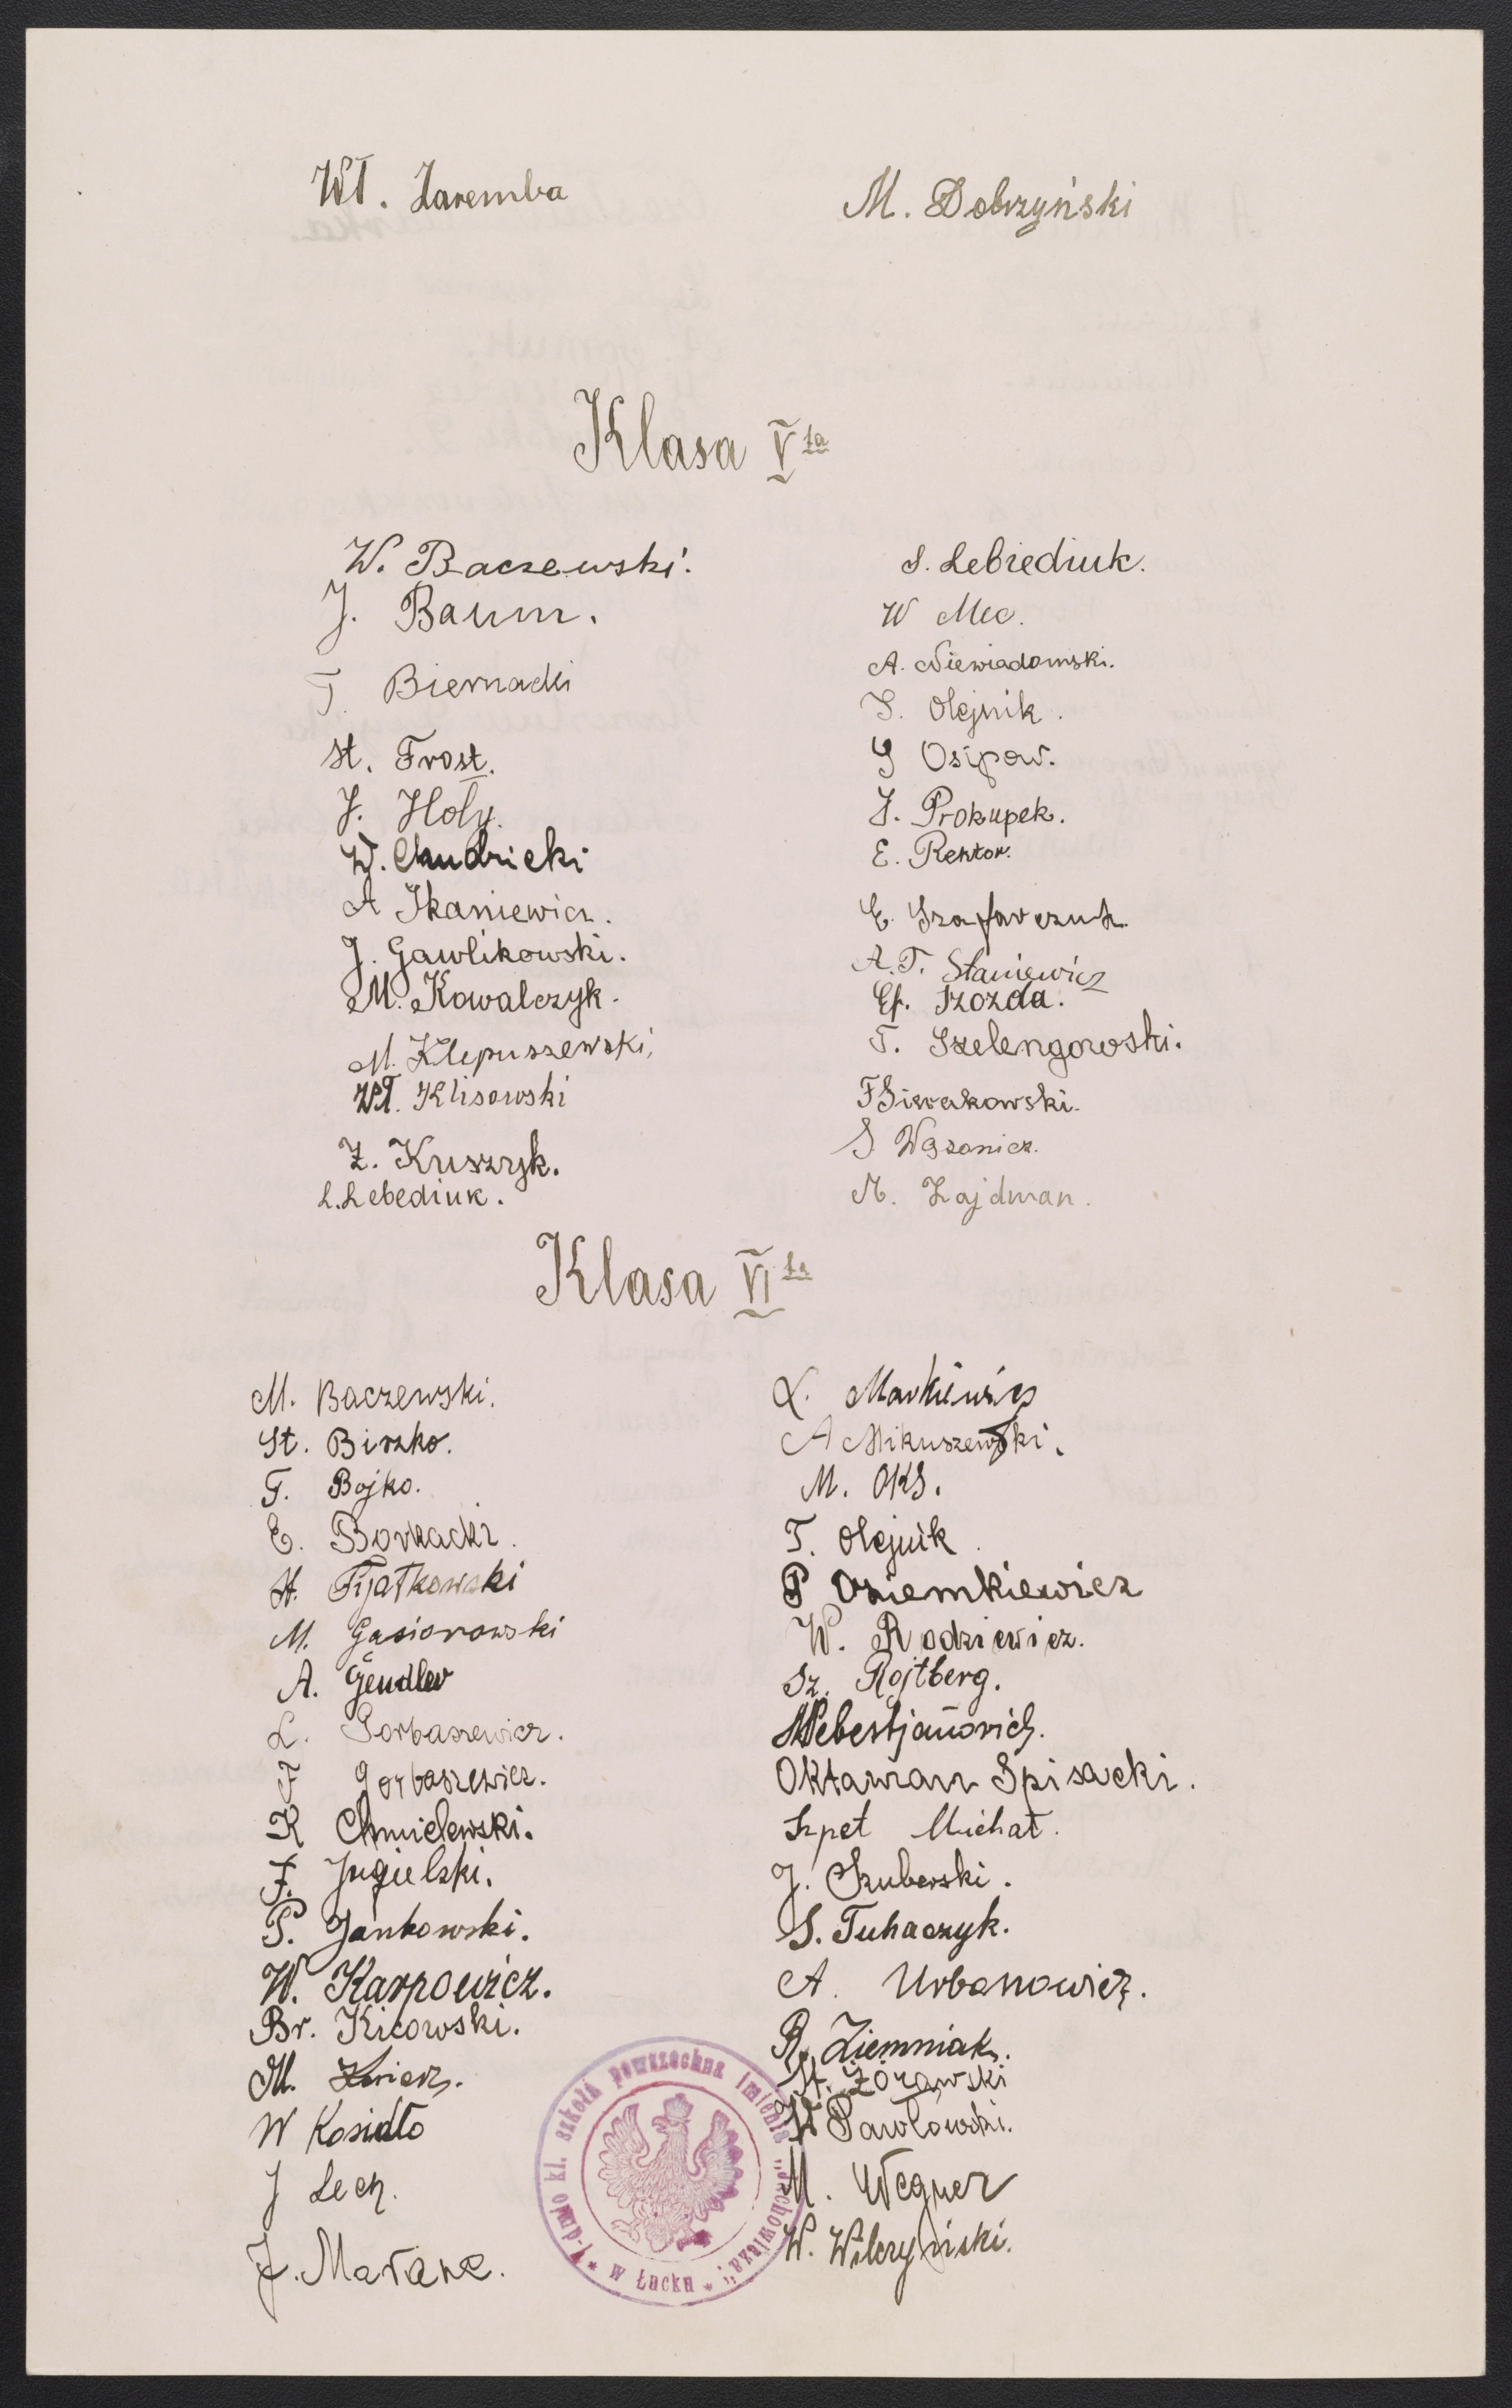 Wł. Zaremba
M. Dobrzyński
Klasa V ta
W. Baczewski.
J. Baum.
T. Biernacki
St. Frost.
J. Hoły.
W. Chudzicki
A Ikaniewicz.
J. Gawlikowski.
M. Kowalczyk.
M. Klepuszewski,
Wł. Klisowski
Z. Kuszryk.
L. Lebediuk.
S. Lebiediuk.
W Mec.
A. Niewiadomski.
S. Olejnik.
S Osipow.
J. Prokupek.
E. Rektor.
E. Szafarczuk
A. T. Staniewicz
Ef. Szozda.
T. Szelengowski.
F Sierakowski.
S Wąsowicz.
M. Zajdman.
Klasa VI ta
M. Baczewski.
St. Birzko.
T. Bojko.
E. Borkacki.
St. Fijałkowski
M. Gąsiorowski
A. Gendler
L. Gorbaszewicz.
F Gorbaszewicz.
K Chmielewski.
F. Jugielski.
P. Jankowski.
W. Karpowicz.
Br. Kicowski.
M.
W Kosidło
J Lech.
J.
L. Markiewicz
A Mikuszewski.
M. OKS.
T. Olejnik.
P Oziemkiewicz
W. Rodziewicz.
Sz. Rojtberg.
Oktawian Spisacki.
Szpet Michał.
J. Szuberski.
S. Tuhaczyk.
A. Urbanowicz.
R. Ziemniak.
St. Żórawski
W Pawłowski.
M. Wegner
W. Wilczyński.
7-dmio kl. szkoła powszechna imienia
* w Łucku *